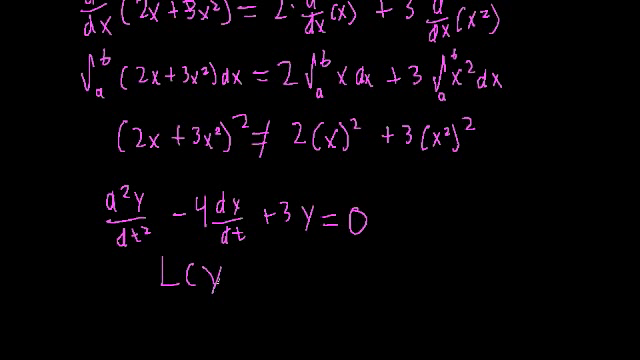 d/dx (2x + 3x²) = 2 · d/dx (x) + 3 d/dx (x²)
∫ₐᵇ (2x + 3x²) dx = 2 ∫ₐᵇ x dx + 3 ∫ₐᵇ x² dx
(2x + 3x²)² ≠ 2(x)² + 3(x²)²
d²y/dt² − 4 dy/dt + 3y = 0
L(y